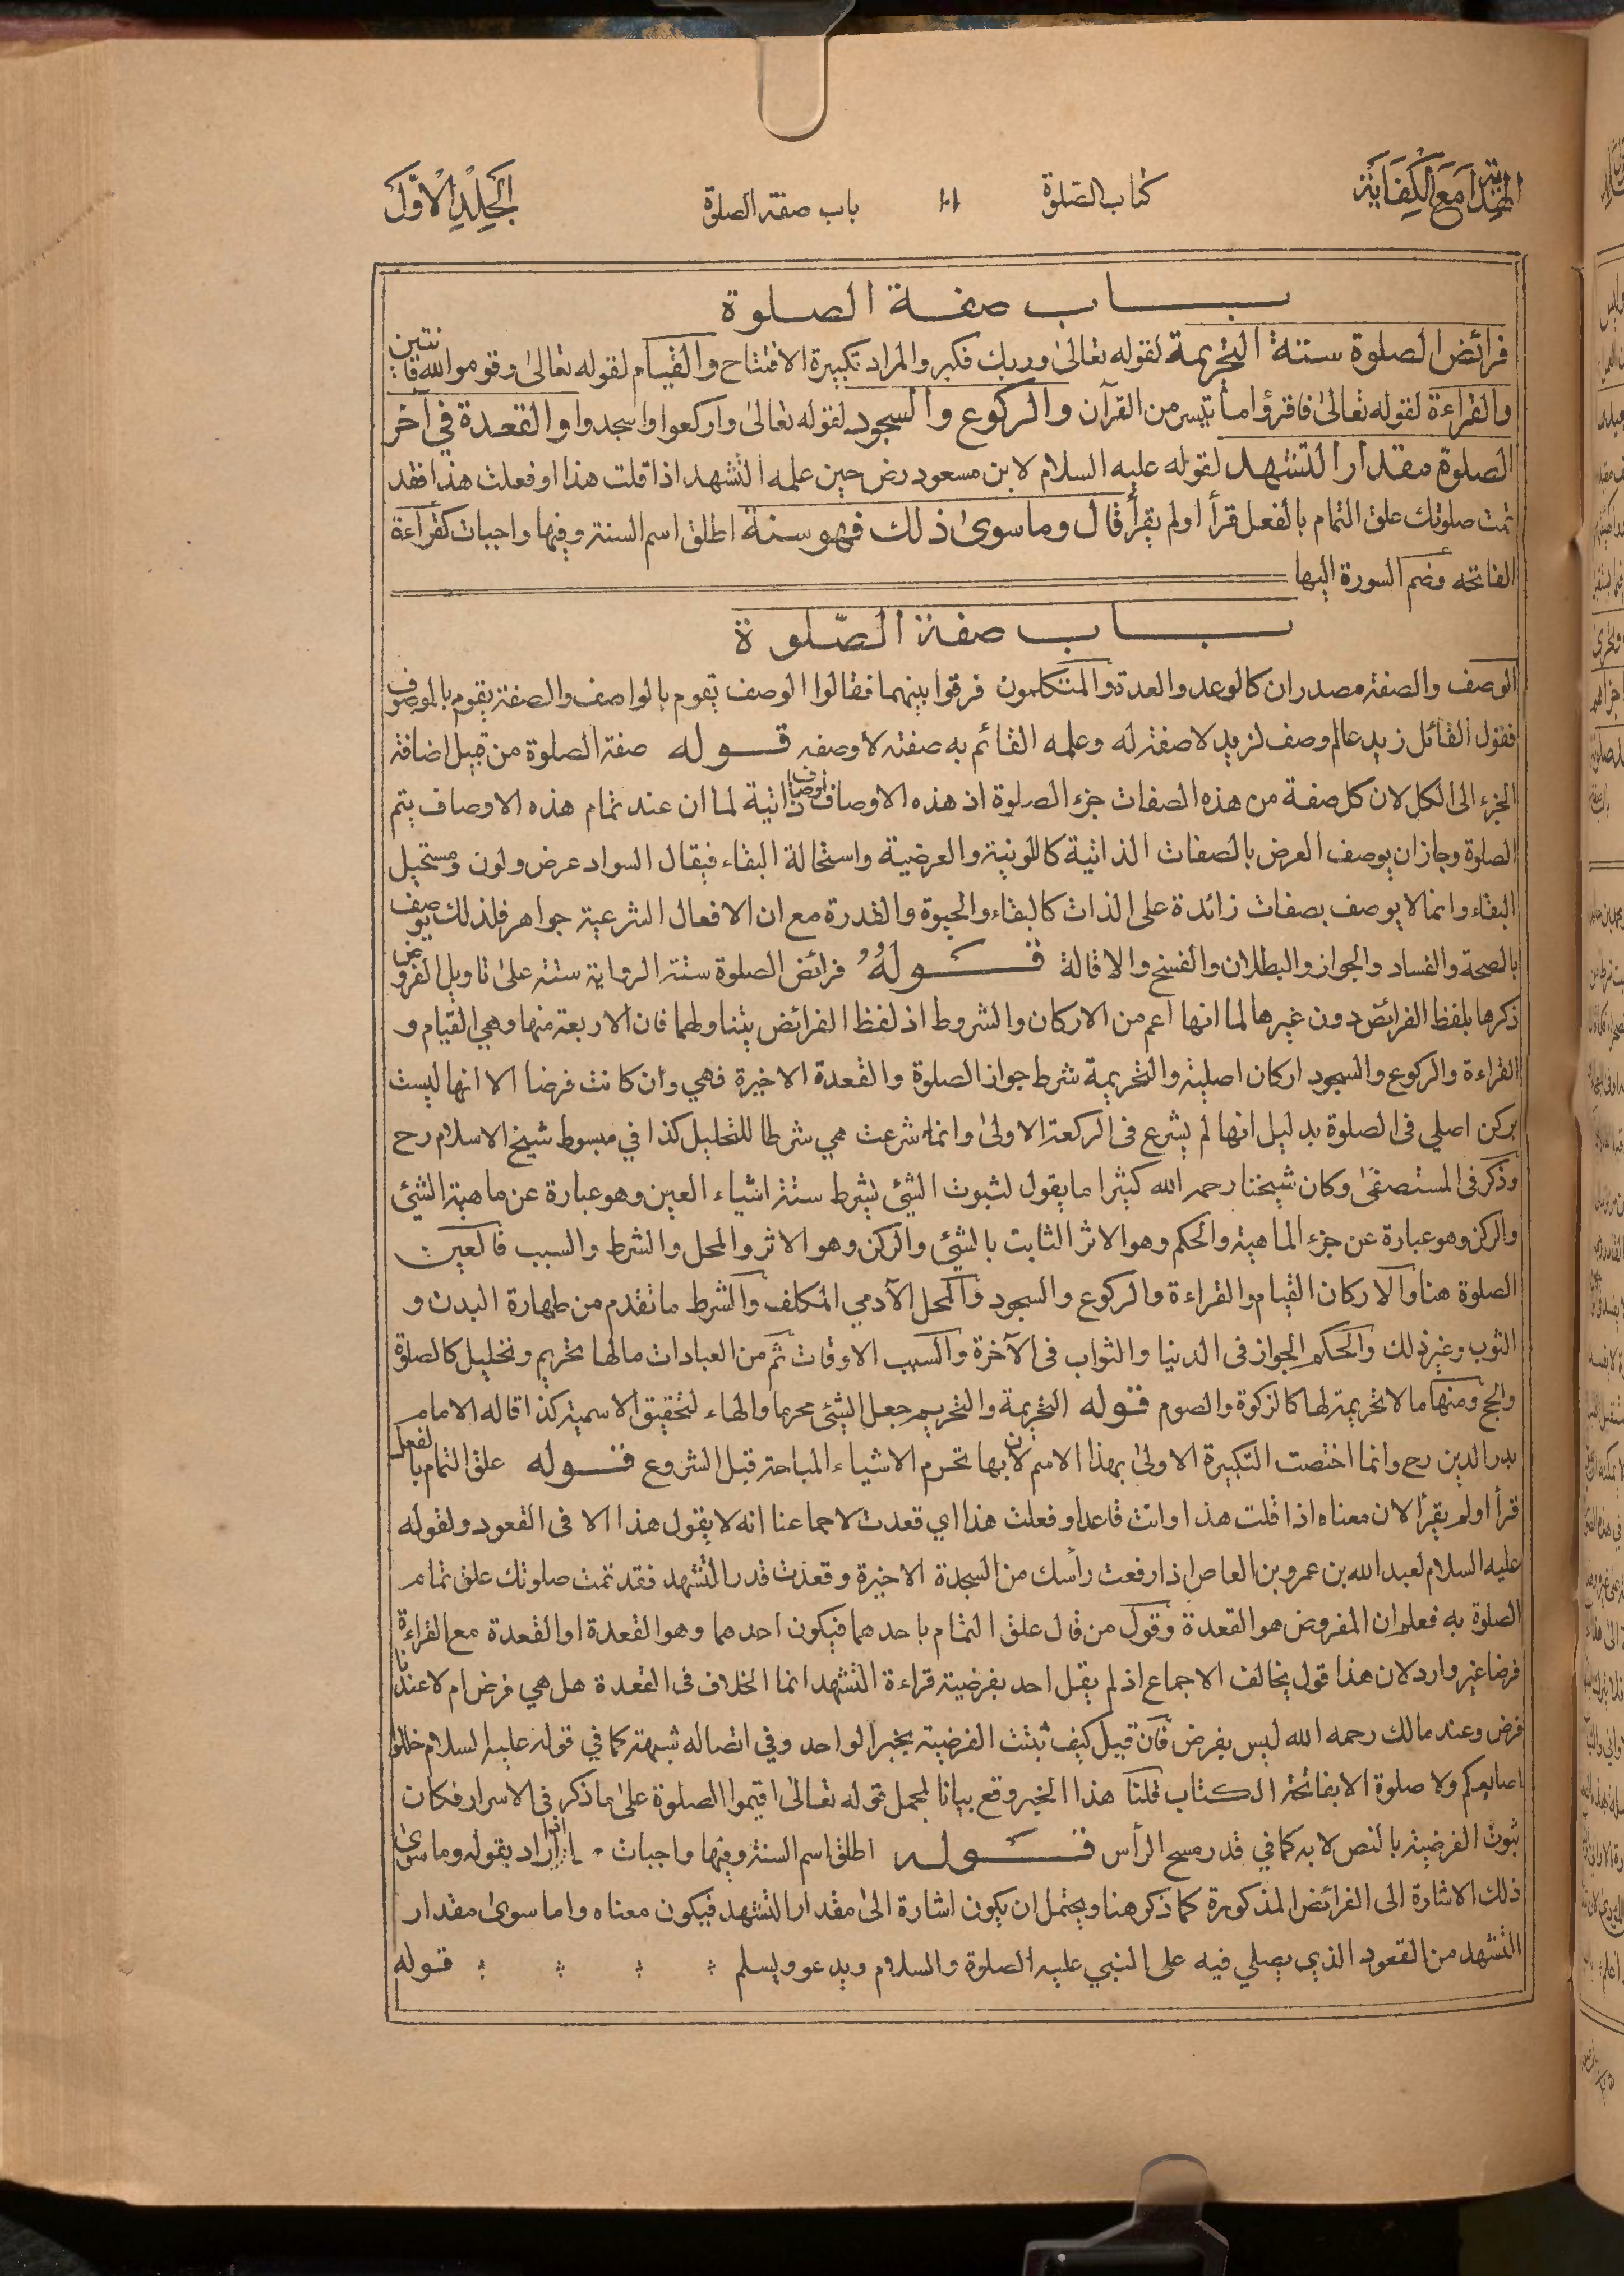 الهداية مع الكفاية
كتاب الصلوة
١٠١
باب صفة الصلوة
الجلد الاول
بــــاب صفــة الصــلوة
فرائض الصلوة ستة التحريمة لقوله تعالى وربك فكبر والمراد تكبيرة الافتتاح والقيام لقوله تعالى وقوموا لله قانتين
والقراءة لقوله تعالى فاقرؤا ما تيسر من القرآن والركوع والسجود لقوله تعالى واركعوا واسجدوا والقعدة في آخر
الصلوة مقدار التشهد لقوله عليه السلام لابن مسعود رض حين علمه التشهد اذا قلت هذا او فعلت هذا فقد
تمت صلوتك علق التمام بالفعل قرأ او لم يقرأ قال وما سوى ذلك فهو سنة اطلق اسم السنة وفيها واجبات كقراءة
الفاتحه وضم السورة اليها
بــــاب صفة الصّلوة
الوصف والصفة مصدران كالوعد والعدة والمتكلمون فرقوا بينهما فقالوا الوصف يقوم بالواصف والصفة يقوم بالموصوف
فقول القائل زيد عالم وصف لزيد لا صفة له وعلمه القائم به صفته لا وصفه قــوله صفة الصلوة من قبيل اضافة
الجزء الى الكل لان كل صفة من هذه الصفات جزء الصلوة اذ هذه الاوصاف اوصاف ذاتية لما ان عند تمام هذه الاوصاف يتم
الصلوة وجاز ان يوصف العرض بالصفات الذاتية كاللونية والعرضية واستحالة البقاء فيقال السواد عرض ولون ومستحيل
البقاء وانما لا يوصف بصفات زائدة على الذات كالبقاء والحيوة والقدرة مع ان الافعال الشرعية جواهر فلذلك يوصف
بالصحة والفساد والجواز والبطلان والفسخ والاقالة قــولهُ فرائض الصلوة ستة الرواية ستة على تاويل الفروض
ذكرها بلفظ الفرائض دون غيرها لما انها اعم من الاركان والشروط اذ لفظ الفرائض يتناولهما فان الاربعة منها وهي القيام و
القراءة والركوع والسجود اركان اصلية والتحريمة شرط جواز الصلوة والقعدة الاخيرة فهي وان كانت فرضا الا انها ليست
بركن اصلي فى الصلوة بدليل انها لم يشرع فى الركعة الاولى وانما شرعت هي شرطا للتحليل كذا في مبسوط شيخ الاسلام رح
وذكر فى المستصفى وكان شيخنا رحمه الله كثيرا ما يقول لثبوت الشئ يشرط ستة اشياء العين وهو عبارة عن ماهية الشئ
والركن وهو عبارة عن جزء الماهية والحكم وهو الاثر الثابت بالشئ والركن وهو الاثر والمحل والشرط والسبب فالعين
الصلوة هنا والاركان القيام والقراءة والركوع والسجود والمحل الآدمي المكلف والشرط ما تقدم من طهارة البدن و
الثوب وغير ذلك والحكم الجواز فى الدنيا والثواب فى الآخرة والسبب الاوقات ثم من العبادات ما لها تحريم وتحليل كالصلوة
والحج ومنها ما لا تحريمة لها كالزكوة والصوم قــوله التحريمة والتحريم جعل الشئ محرما والهاء لتحقيق الاسمية كذا قاله الامام
بدر الدين رح وانما اختصت التكبيرة الاولى بهذا الاسم لان بها تحرم الاشياء المباحة قبل الشروع قــوله علق التمام بالفعل
قرأ او لم يقرأ لان معناه اذا قلت هذا وانت قاعد او فعلت هذا اي قعدت لاجماعنا انه لا يقول هذا الا فى القعود ولقوله
عليه السلام لعبد الله بن عمرو بن العاص اذا رفعت رأسك من السجدة الاخيرة وقعدت قدر التشهد فقد تمت صلوتك علق تمام
الصلوة به فعلم ان المفروض هو القعدة وقول من قال علق التمام باحدهما فيكون احدهما وهو القعدة او القعدة مع القراءة
فرضا غير وارد لان هذا قول يخالف الاجماع اذ لم يقل احد بفرضية قراءة التشهد انما الخلاف فى القعدة هل هي فرض ام لا عندنا
فرض وعند مالك رحمه الله ليس بفرض فان قيل كيف ثبتت الفرضية بخبر الواحد وفي اتصاله شبهة كما في قوله عليه السلام خللوا
اصابعكم ولا صلوة الا بفاتحة الكتاب قلنا هذا الخبر وقع بيانا لمجمل قوله تعالى اقيموا الصلوة على ما ذكر فى الاسرار فكان
ثبوت الفرضية بالنص لا به كما في قدر مسح الرأس قــوله اطلق اسم السنة وفيها واجبات اراد بقوله وما سوى
ذلك الاشارة الى الفرائض المذكورة كما ذكر هنا ويحتمل ان يكون اشارة الى مقدار التشهد فيكون معناه واما سوى مقدار
التشهد من القعود الذي يصلي فيه على النبي عليه الصلوة والسلام ويدعو ويسلم قــوله